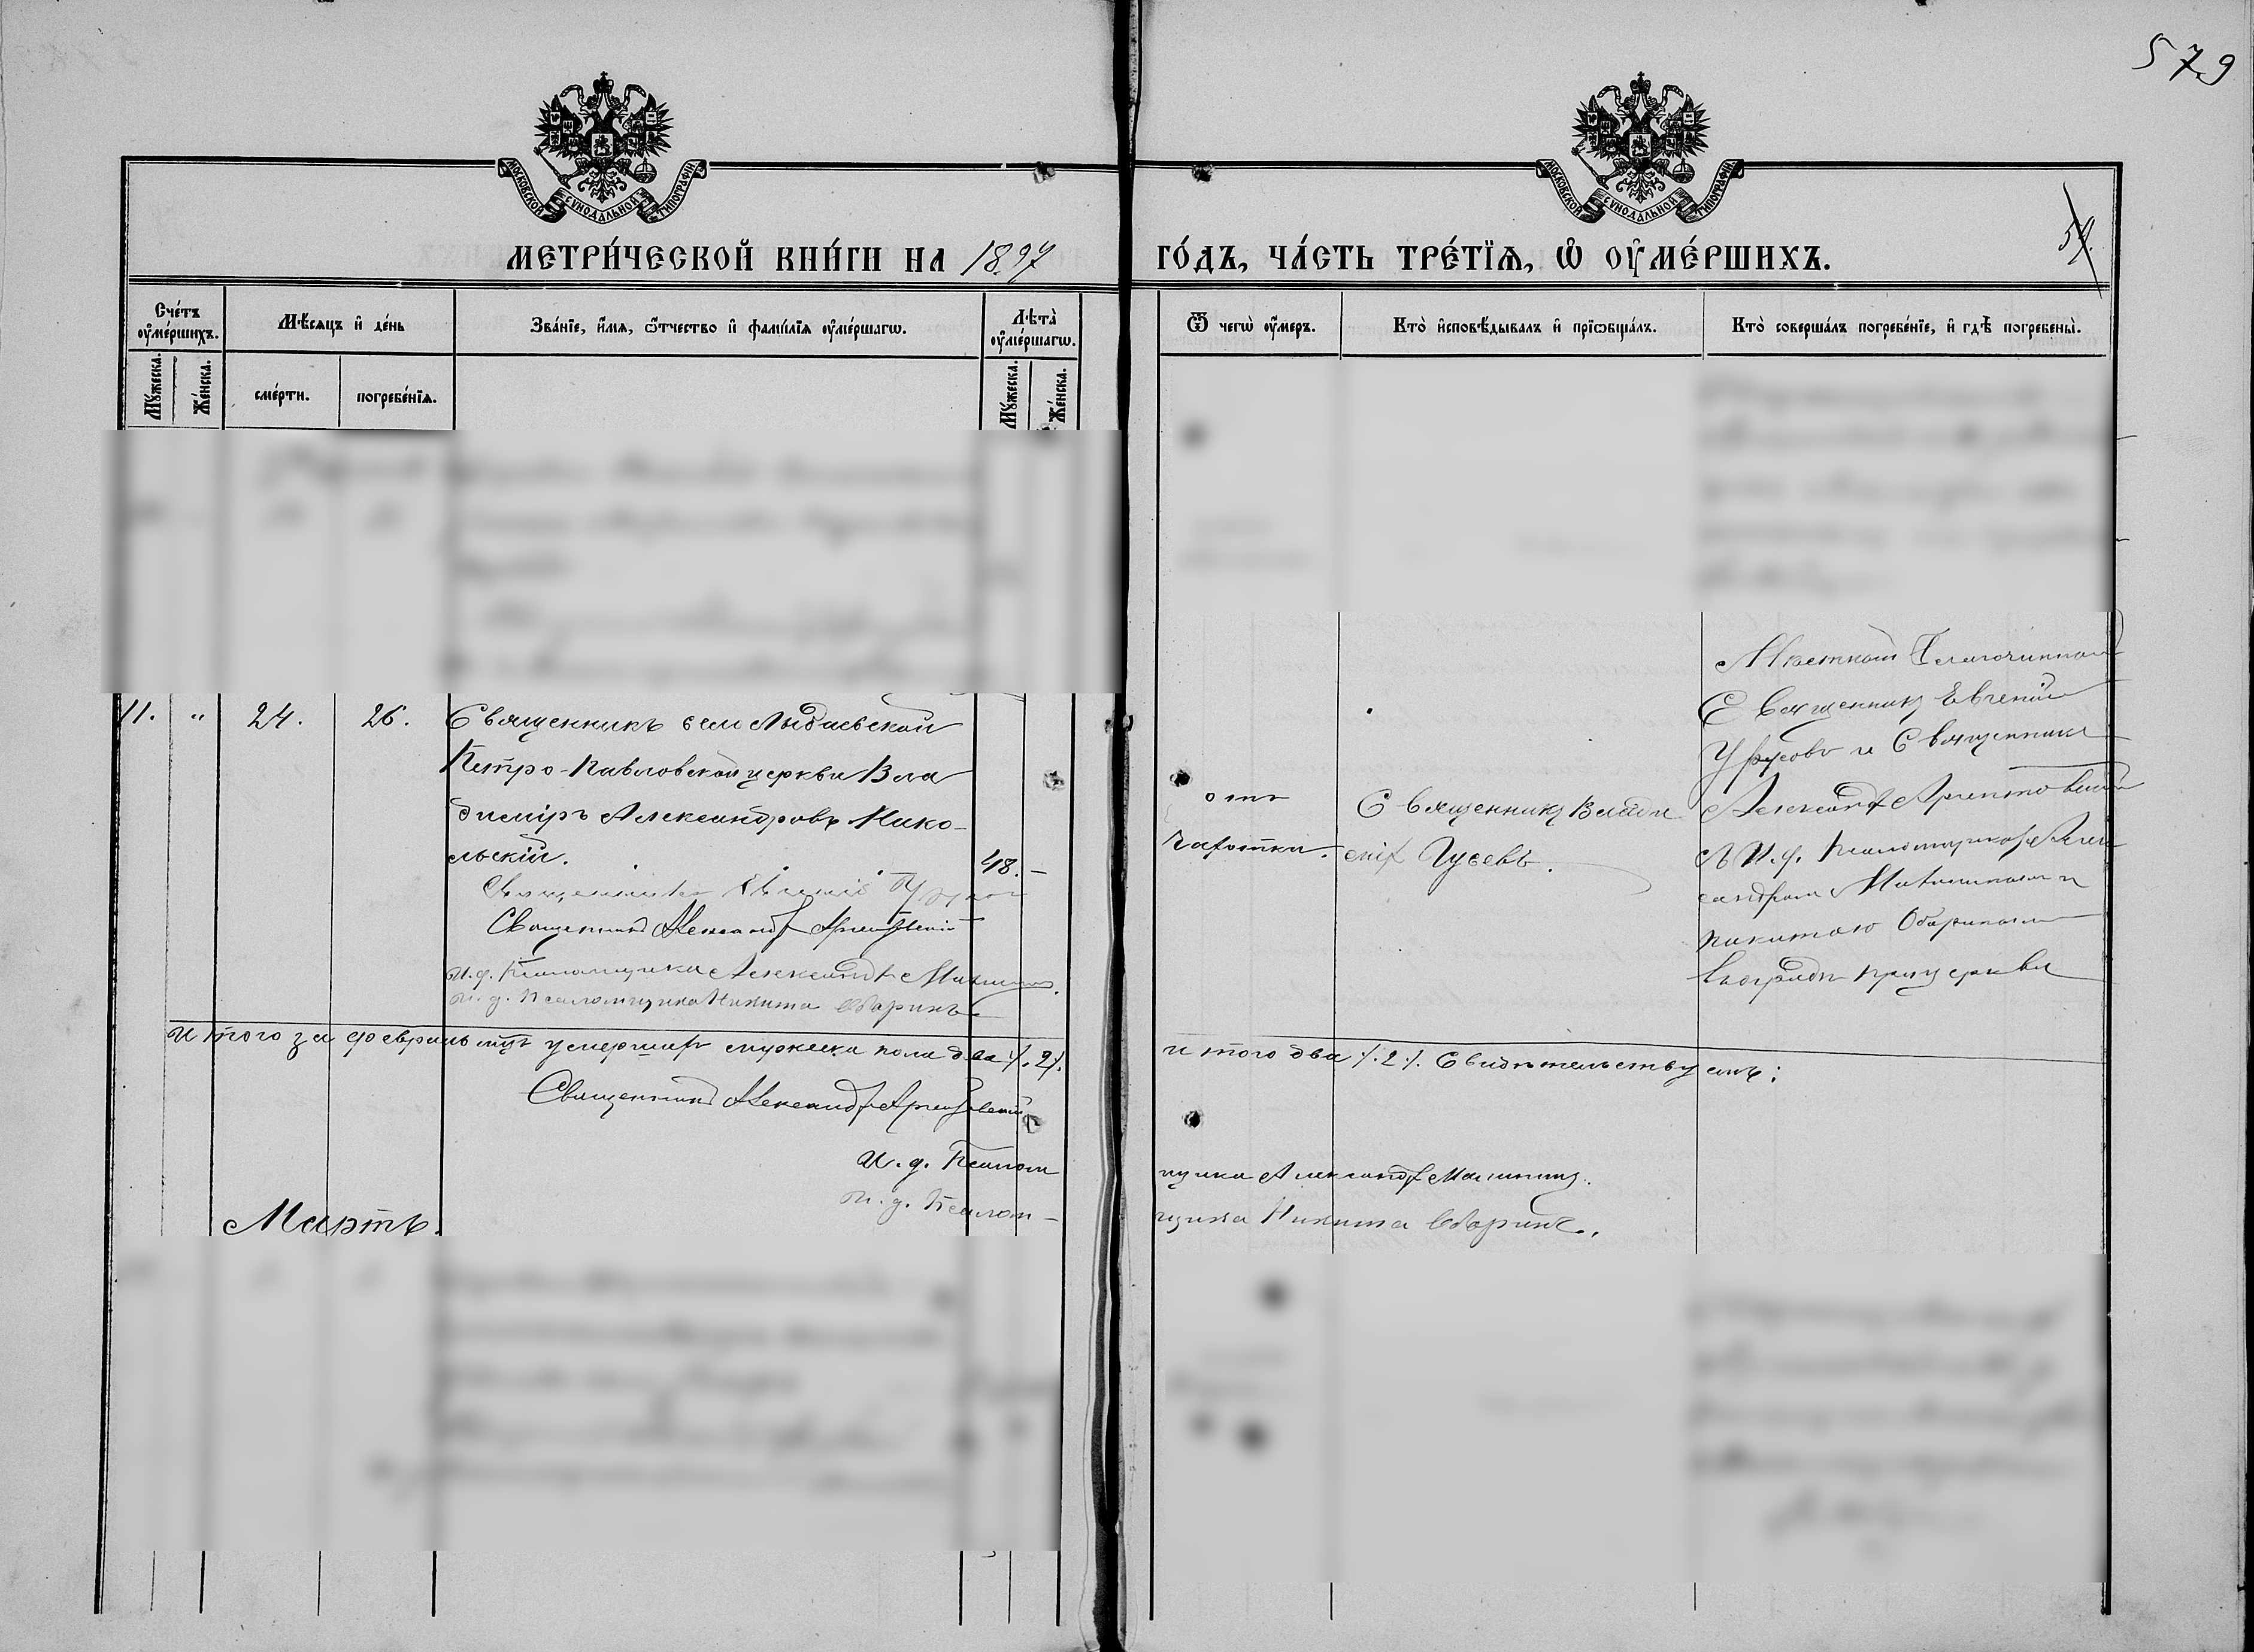 579
МОСКОВСКОЙ СУНОДАЛЬНОЙ ТИПОГРАФІИ
МОСКОВСКОЙ СУНОДАЛЬНОЙ ТИПОГРАФІИ
54.
МЕТРИ́ЧЕСКОЙ КНИ́ГИ НА 1897
ГО́ДЪ, ЧА́СТЬ ТРЕ́ТЇѦ, Ѡ҆ ОУ҆МЕ́РШИХЪ.
Сче́тъ оу҆ме́ршихъ.
Мꙋ́жеска.
Же́нска.
Мѣ́сѧцъ и҆ де́нь
сме́рти.
погребе́нїѧ.
Зва́нїе, и҆́мѧ, ѻ҆́тчество и҆ фамі́лїѧ оу҆ме́ршагѡ.
Лѣ́та оу҆ме́ршагѡ.
Мꙋ́жеска.
Же́нска.
Ѿ чегѡ̀ оу҆́меръ.
Кто̀ и҆сповѣ́дывалъ и҆ прїѡбща́лъ.
Кто̀ соверша́лъ погребе́нїе, и҆ гдѣ̀ погребены̀.
11. " 24. 26. Священникъ села
Петро-Павловской церкви Вла
диміръ Александровъ Нико-
льскій. 48. –
Священникъ Евгеній
Священникъ Александръ
И. д. Псаломщика Александръ
И. д. Псаломщика Никита Обаринъ
отъ
чахотки.
Священникъ Влади
міръ Гусевъ.
Мѣстной Благочинной
Священникъ Евгеній
и Священникъ
Александръ
съ И. д. Псаломщиковъ Алек
сандромъ и
Никитою Обаринымъ
въ оградѣ при церкви
Итого за февраль мцъ умершихъ мужеска пола два /.2/.
итого два /.2/. Свидѣтельствуемъ:
Священникъ Александръ
И. д. Псалом
щика Александръ
И. д. Псалом-
щика Никита Обаринъ.
Мартъ.